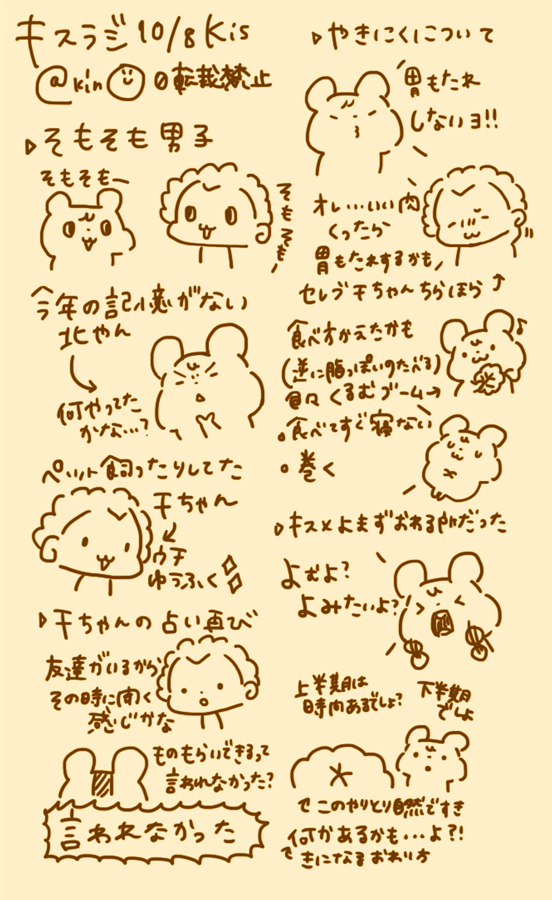 キスラジ10/8 Kis
@kin 0転載禁止
▷そもそも男子
そもそもー
そもそも…
今年の記憶がない
北やん
何やってた
かな…?
ペット飼ったりしてた
千ちゃん
ウチ
ゆうふく
▷千ちゃんの占い再び
友達がいるから
その時に聞く
感じかな
ものもらいできるって
言われなかった?
言われなかった
▷やきにくについて
胃もたれ
しないヨ!!
オレ……いい肉
くったら
胃もたれするかも
セレブ千ちゃんちらほら
食べ方かえたかも
(逆に脂っぽいのたべる)
くるむブーム→
食べてすぐ寝ない
巻く
▷キスメよまずおわる所だった
よむよ?
よみたいよ?!
上半期は
時間あるでしょ?
下半期
でしょ
でこのやりとり自然ですき
何かあるかも…よ?!
きになるおわり方